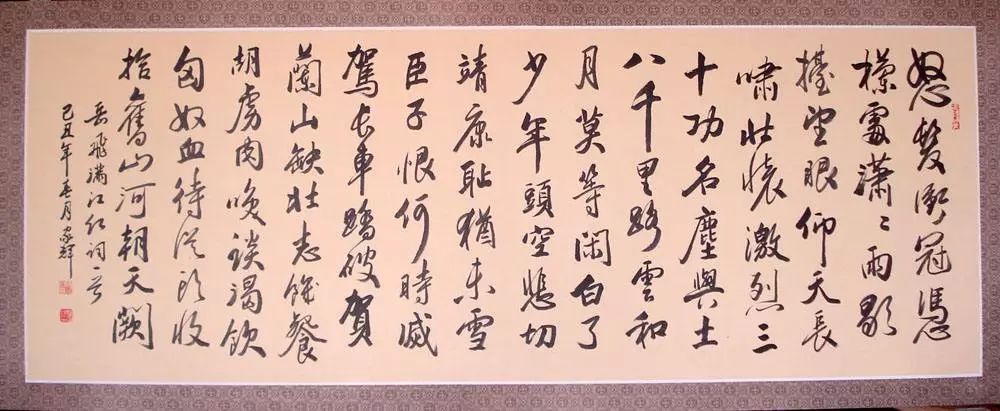 怒髮衝冠憑
欄處瀟〻雨歇
擡望眼仰天長
嘯壯懷激烈三
十功名塵與土
八千里路雲和
月莫等閑白了
少年頭空悲切
靖康耻猶未雪
臣子恨何時滅
駕長車踏破賀
蘭山缺壯志飢餐
胡虜肉咲談渴飲
匈奴血待從頭收
拾舊山河朝天闕
岳飛滿江紅詞一首
己丑年春月 家輝